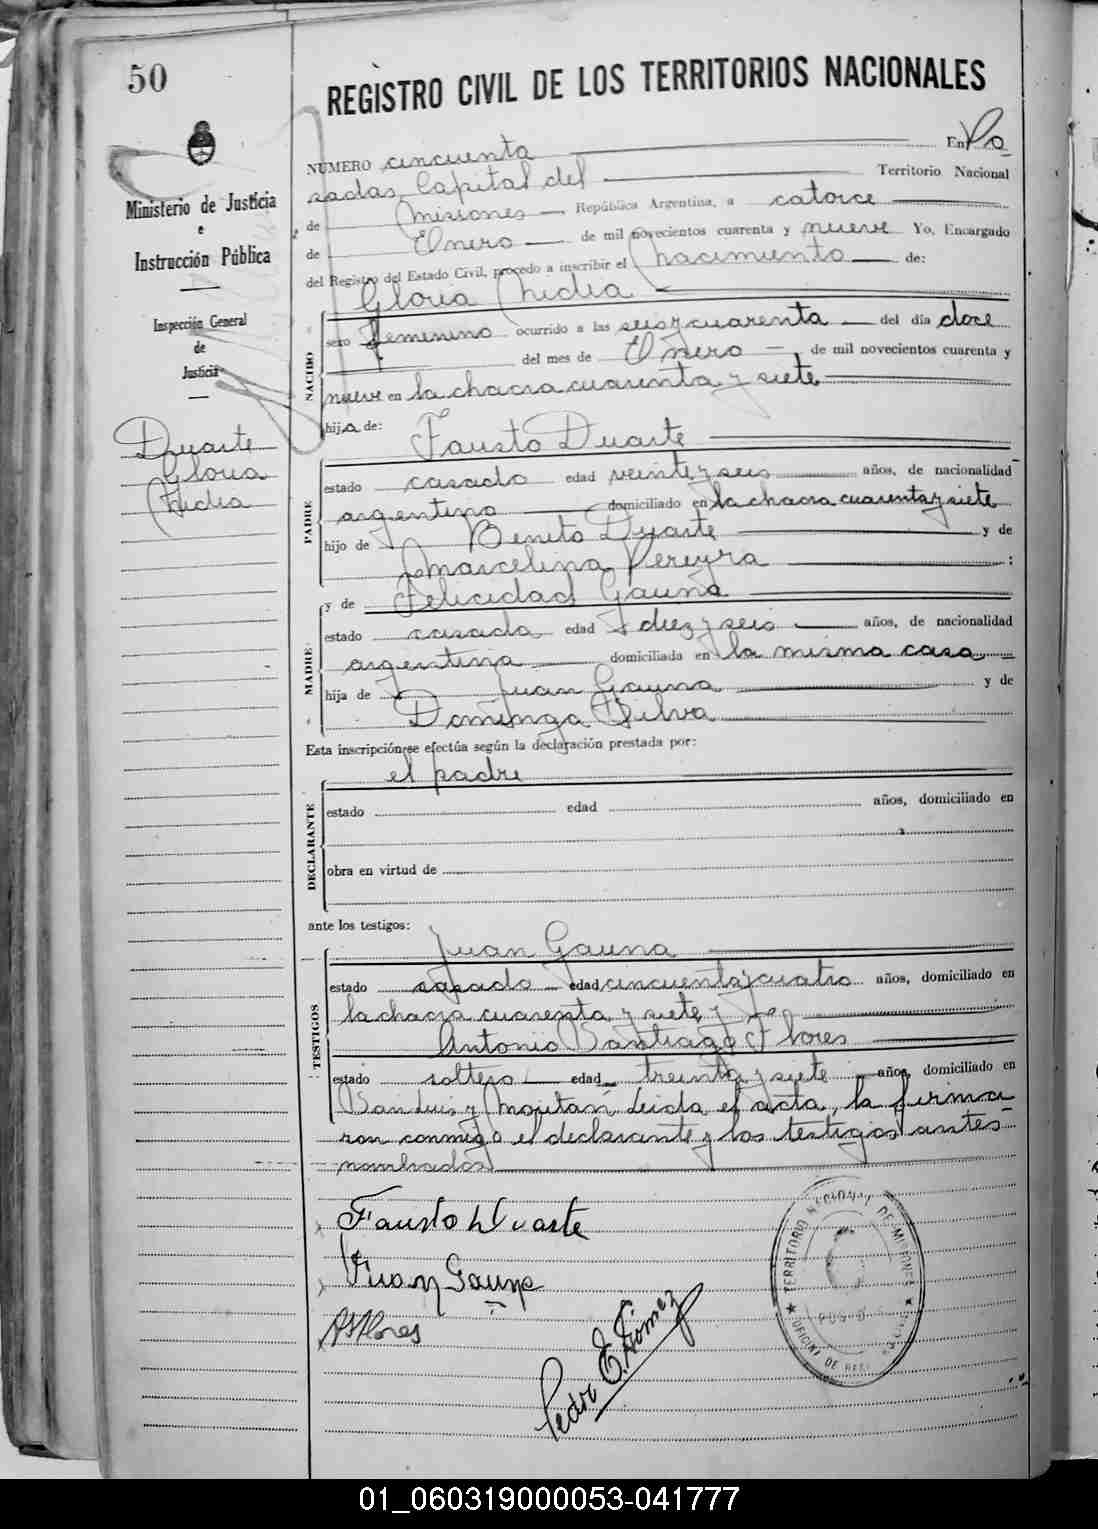 50
REGISTRO CIVIL DE LOS TERRITORIOS NACIONALES
Ministerio de Justicia
e
Instrucción Pública
Inspección General
de
Justicia
Duarte
Gloria
Nidia
NUMERO cincuenta En Po
sadas, Capital del Territorio Nacional
de Misiones República Argentina, a catorce
de Enero de mil novecientos cuarenta y nueve Yo, Encargado
del Registro del Estado Civil, procedo a inscribir el nacimiento de:
Gloria Nidia
NACIDO
sexo femenino ocurrido a las seis y cuarenta del día doce
del mes de Enero de mil novecientos cuarenta y
nueve en la chacra cuarenta y siete
hija de: Fausto Duarte
PADRE
estado casado edad veinte y seis años, de nacionalidad
argentino domiciliado en la chacra cuarenta y siete
hijo de Benito Duarte y de
Marcelina Pereyra :
y de Felicidad Gauna
MADRE
estado casada edad diez y seis años, de nacionalidad
argentina domiciliada en la misma casa
hija de Juan Gauna y de
Dominga Silva
Esta inscripción se efectúa según la declaración prestada por:
el padre
DECLARANTE
estado edad años, domiciliado en
obra en virtud de
ante los testigos:
Juan Gauna
TESTIGOS
estado casado edad cincuenta y cuatro años, domiciliado en
la chacra cuarenta y siete y
Antonio Santiago Flores
estado soltero edad treinta y siete años, domiciliado en
San Luis y Leida el acta, la firma
ron conmigo el declarante y los testigos antes
nombrados
Fausto Duarte
Juan Gauna
ASFlores
Pedro E. Gómez
TERRITORIO NACIONAL DE MISIONES
OFICINA DE
01_060319000053-041777